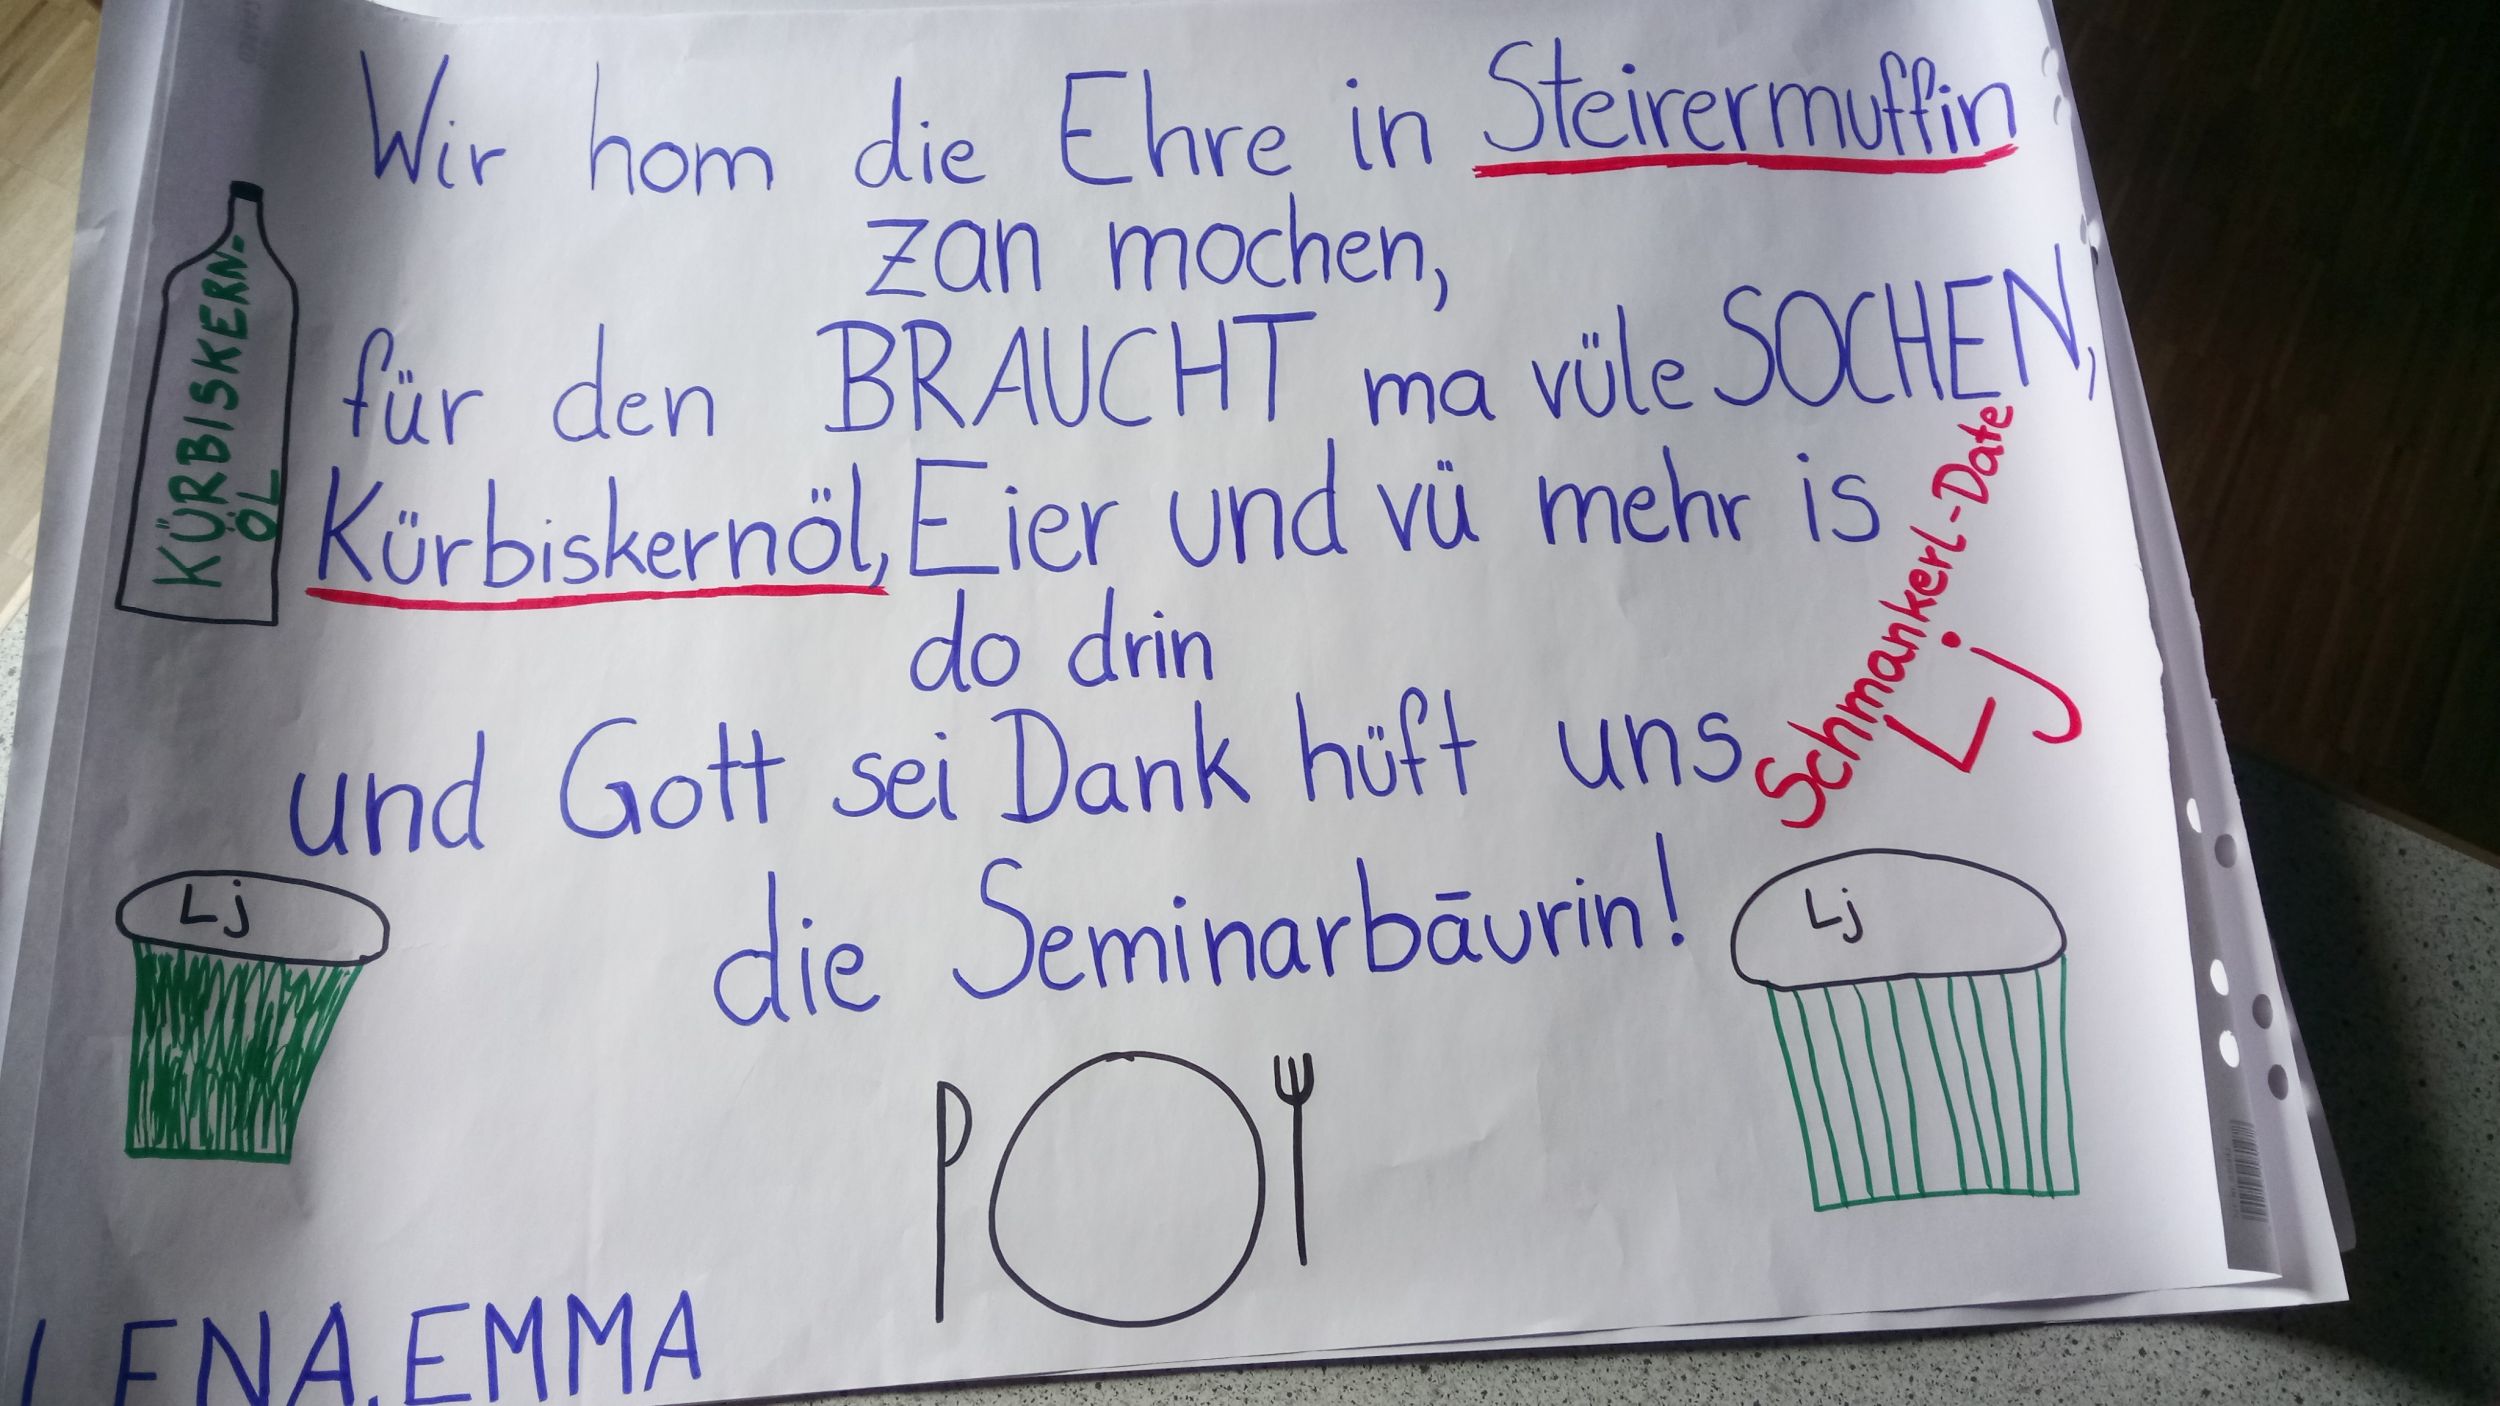 Wir hom die Ehre in Steirermuffin
zan mochen,
für den BRAUCHT ma vüle SOCHEN,
Kürbiskernöl, Eier und vü mehr is
do drin
und Gott sei Dank hüft uns
die Seminarbäurin!
KÜRBISKERN-
ÖL
Schmankerl-Date
Lj
Lj
Lj
LENA, EMMA